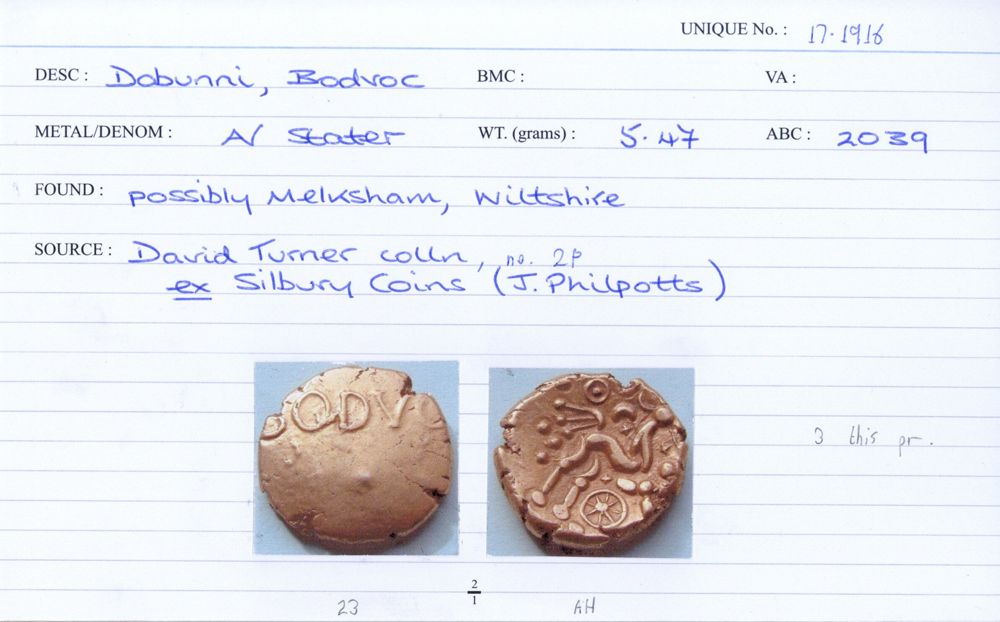 UNIQUE No. : 17.1916
DESC : Dobunni, Bodvoc BMC : VA :
METAL/DENOM : A/ Stater WT. (grams) : 5.47 ABC : 2039
FOUND : possibly Melksham, Wiltshire
SOURCE : David Turner colln, no. 2P
ex Silbury Coins (J. Philpotts)
BODV
3 this pr.
2
1
23 AH